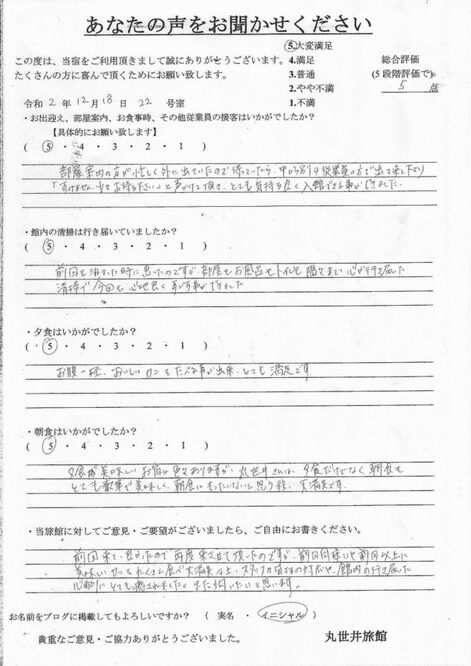 あなたの声をお聞かせください
この度は、当宿をご利用頂きまして誠にありがとうございます。
たくさんの方に喜んで頂くためにお願い致します。
5.大変満足
4.満足
3.普通
2.やや不満
1.不満
総合評価
(5段階評価で)
5 点
令和 2 年 12 月 18 日 22 号室
・お出迎え、部屋案内、お食事時、その他従業員の接客はいかがでしたか？
【具体的にお願い致します】
( 5 ・ 4 ・ 3 ・ 2 ・ 1 )
部屋案内の方が忙しく外に出ていたので待っていたら、中から別の従業員の方で出て来て下さり
「すみません、少々お待ち下さい」と声かけて頂き、とても気持ち良く入館できる事ができました。
・館内の清掃は行き届いていましたか？
( 5 ・ 4 ・ 3 ・ 2 ・ 1 )
前回も泊まった時に思ったのですが部屋もお風呂もトイレも隅々まで心が行き届いた
清掃で今回も心地良く過ごす事ができました
・夕食はいかがでしたか？
( 5 ・ 4 ・ 3 ・ 2 ・ 1 )
お腹一杯、おいしいカニをたべる事が出来、とても満足です
・朝食はいかがでしたか？
( 5 ・ 4 ・ 3 ・ 2 ・ 1 )
夕食が美味しいお宿は色々ありますが、丸世井さんは、夕食だけでなく朝食も
とても豪華で美味しく、朝食にもったいないと思う程、大満足です。
・当旅館に対してご意見・ご要望がございましたら、ご自由にお書きください。
前回来て、良かったので再度来させて頂いたのですが、前回同様いや前回以上に
美味しいカニをたくさん食べ大満足な上、スタッフの皆さまの対応や、館内の行き届いた
心配りにとても癒されました。また伺いたいと思います。
お名前をブログに掲載してもよろしいですか？ ( 実名 ・ イニシャル )
貴重なご意見・ご協力ありがとうございました。
丸世井旅館